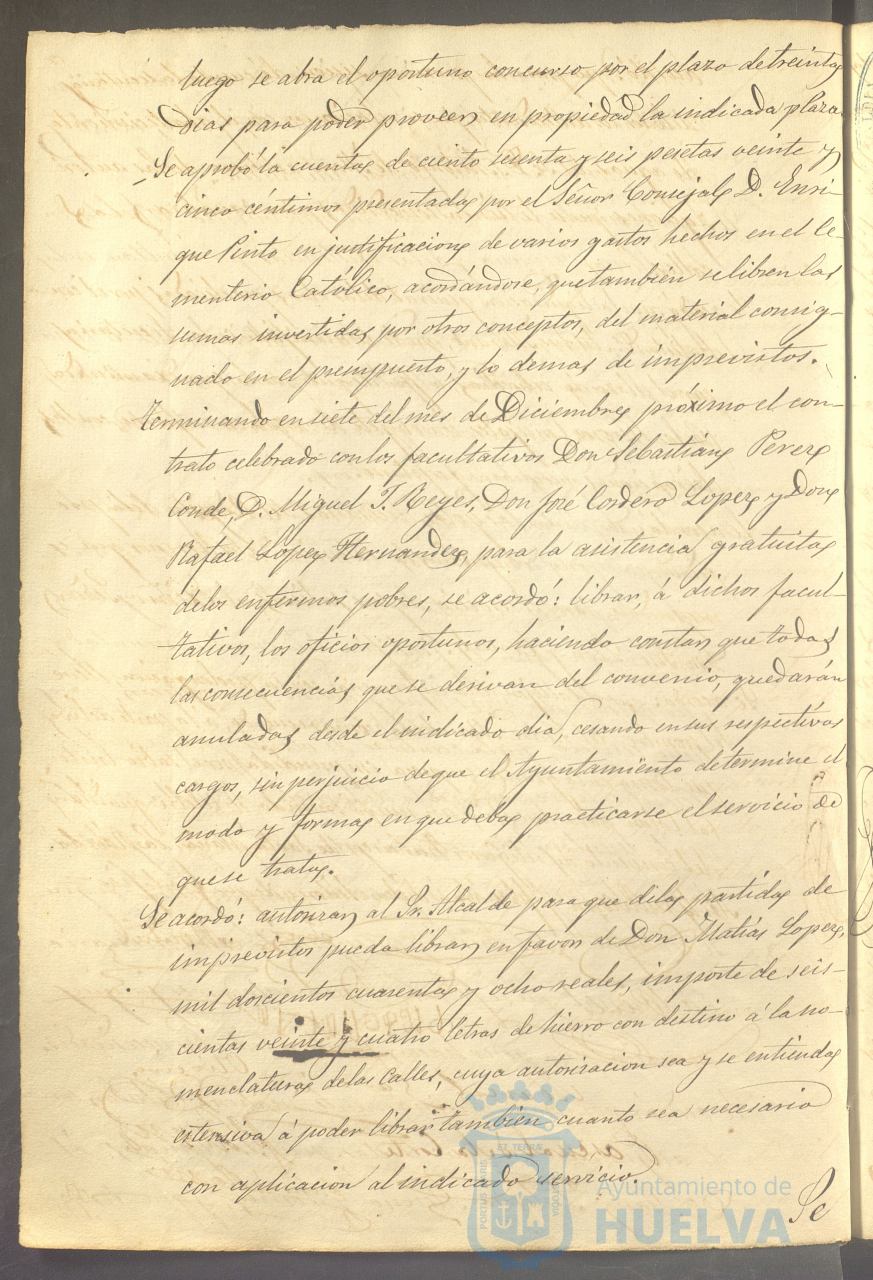 luego se abra el oportuno concurso por el plazo de treinta
dias para poder proveer en propiedad la indicada plaza.
Se aprobó la cuenta de ciento sesenta y seis pesetas veinte y
cinco céntimos presentada por el Señor Consejal D. Enri-
que Pinto en justificacion de varios gastos hechos en el Ce-
menterio Católico, acordándose, que también se libren las
sumas invertidas por otros conceptos, del material consig-
nado en el presupuesto, y lo demas de imprevistos.
Terminando en siete del mes de Diciembre próximo el con-
trato celebrado con los facultativos Don Sebastian Perez
Conde, D. Miguel T. Reyes, Don José Cordero Lopez y Don
Rafael Lopez Hernandez, para la asistencia gratuita
de los enfermos pobres, se acordó: librar, á dichos facul-
tativos, los oficios oportunos, haciendo constar que todas
las consecuencias que se derivan del convenio, quedarán
anuladas desde el indicado dia, cesando en sus respectivos
cargos, sin perjuicio de que el Ayuntamiento determine el
modo y forma en que deba practicarse el servicio de
que se trata.
Se acordó: autorizar al Sr. Alcalde para que de la partida de
imprevistos pueda librar en favor de Don Matías Lopez,
mil doscientos cuarenta y ocho reales, importe de seis-
cientas veinte y cuatro letras de hierro con destino á la no-
menclatura de las calles, cuya autorizacion sea y se entienda
estensiva á poder librar también cuanto sea necesario
con aplicacion al indicado servicio.
Se
Ayuntamiento de
HUELVA